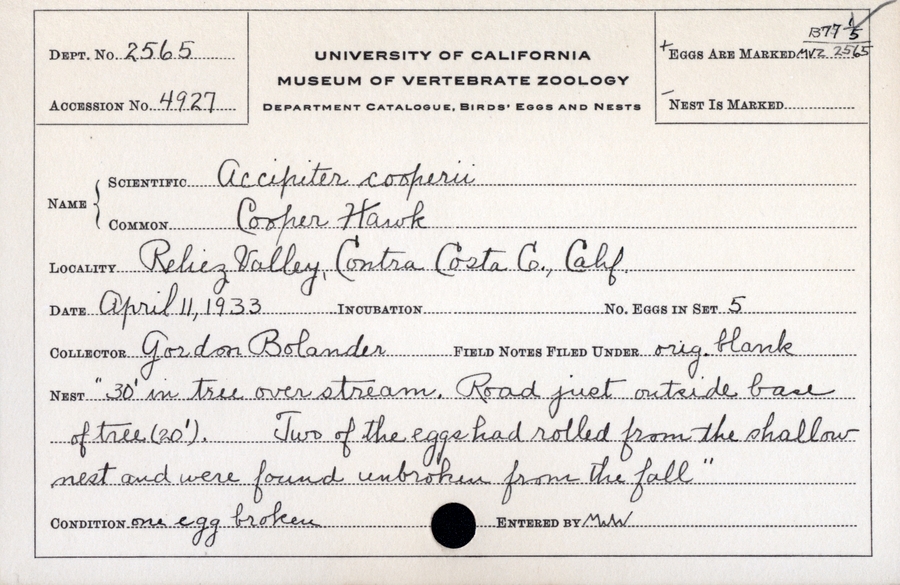 B77 1/5
DEPT. NO. 2565
UNIVERSITY OF CALIFORNIA
+ EGGS ARE MARKED MVZ 2565
MUSEUM OF VERTEBRATE ZOOLOGY
ACCESSION NO. 4927
DEPARTMENT CATALOGUE, BIRDS' EGGS AND NESTS
NEST IS MARKED
NAME
SCIENTIFIC Accipiter cooperii
COMMON Cooper Hawk
LOCALITY Reliez Valley, Contra Costa Co., Calif.
DATE April 11, 1933 INCUBATION NO. EGGS IN SET 5
COLLECTOR Gordon Bolander FIELD NOTES FILED UNDER orig. blank
NEST "30' in tree over stream. Road just outside base
of tree (20'). Two of the eggs had rolled from the shallow
nest and were found unbroken from the fall"
CONDITION one egg broken ENTERED BY MWW